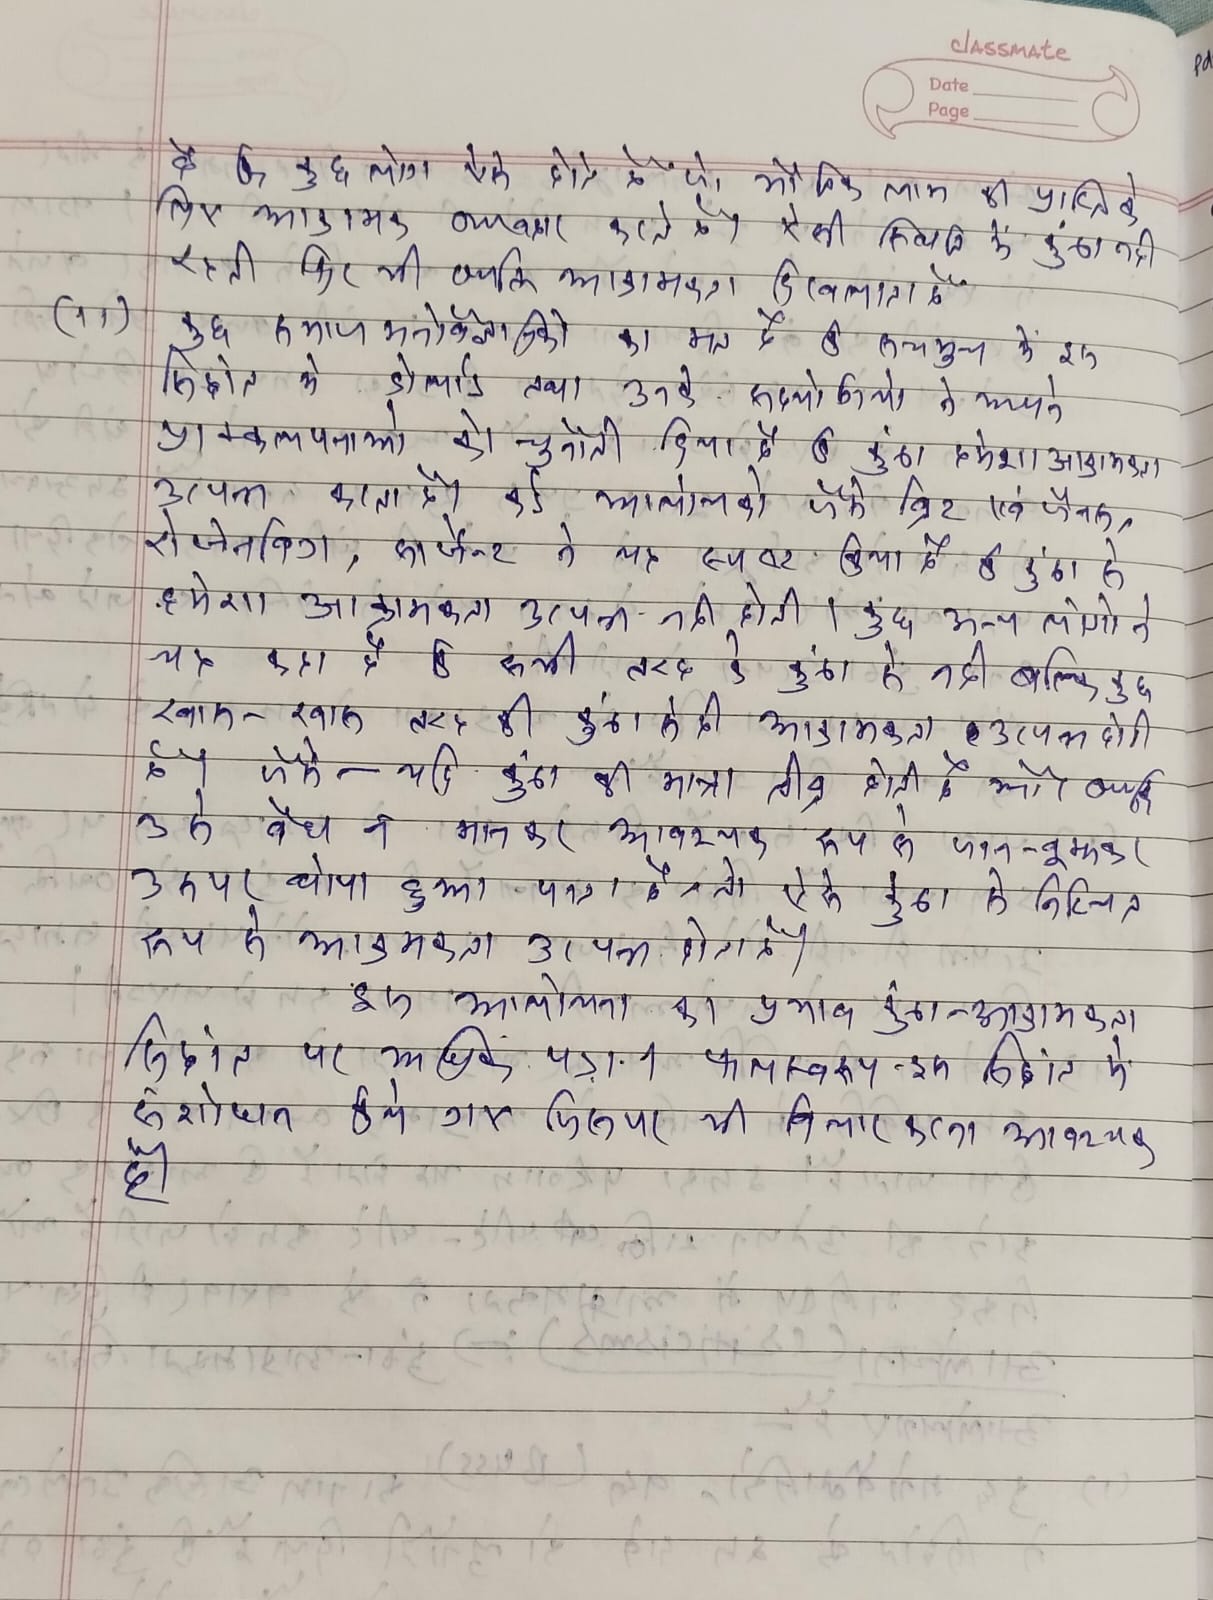 classmate
Date
Page
है कि कुछ लोग ऐसे होते हैं जो मौद्रिक लाभ की प्राप्ति के
लिए आक्रामक व्यवहार करते हैं। ऐसी स्थिति में कुंठा नहीं
रहती फिर भी व्यक्ति आक्रामकता दिखलाता है
(11) कुछ समाज मनोवैज्ञानिकों का मत है कि सचमुच में इस
सिद्धांत में डोलार्ड तथा उनके सहयोगियों ने अपने
प्राक्कल्पनाओं को चुनौती दिया है कि कुंठा हमेशा आक्रामकता
उत्पन्न करता है। कई आलोचकों जैसे ब्रिट एवं जैनस,
रोजेनविग, सार्जेन्ट ने यह स्पष्ट किया है कि कुंठा से
हमेशा आक्रामकता उत्पन्न नहीं होती। कुछ अन्य लोगों ने
यह कहा है कि सभी तरह के कुंठा से नहीं बल्कि कुछ
खास-खास तरह की कुंठा से ही आक्रामकता उत्पन्न होती
है। जैसे - यदि कुंठा की मात्रा तीव्र होती है और व्यक्ति
उसे वैध न मानकर आवश्यक रूप से जान-बूझकर
उसपर थोपा हुआ पाता है तो ऐसे कुंठा से निश्चित
रूप से आक्रमकता उत्पन्न होता है।
इस आलोचना का प्रभाव कुंठा-आक्रामकता
सिद्धांत पर अधिक पड़ा। फलस्वरूप इस सिद्धांत में
संशोधन किये गए जिसपर भी विचार करना आवश्यक
है।